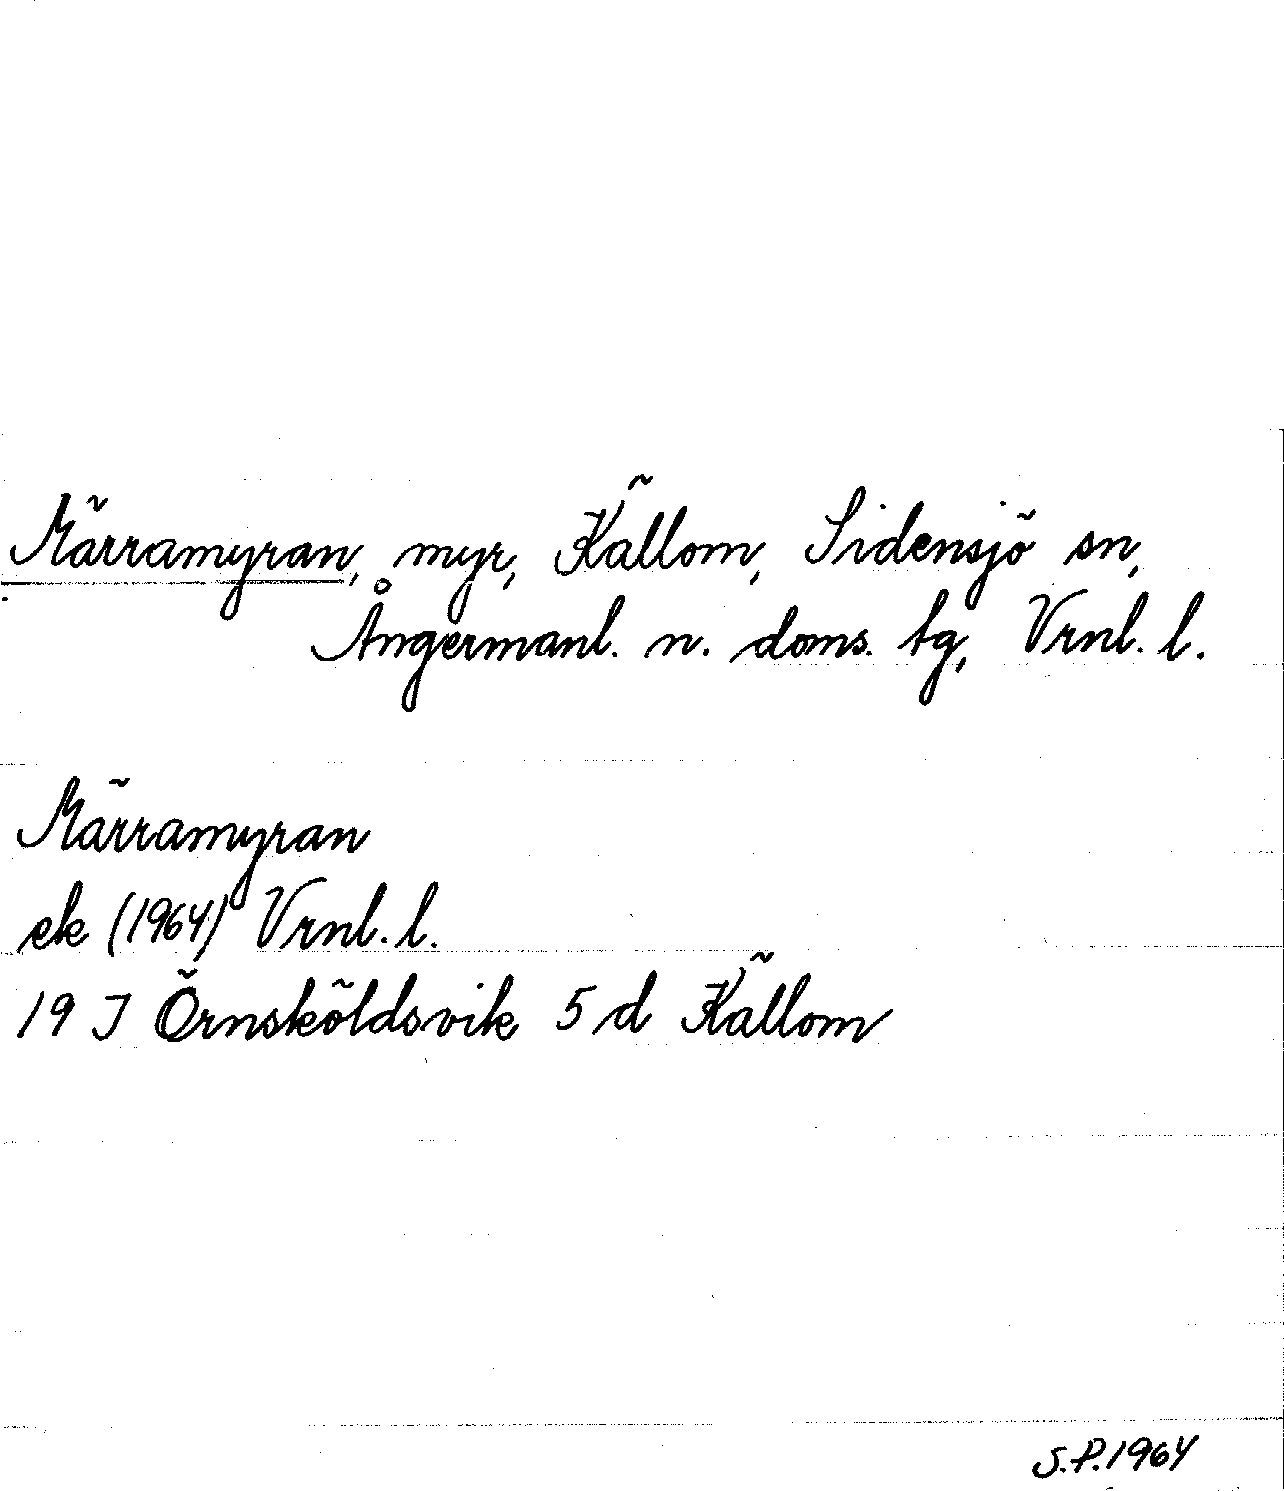 Märramyran, myr, Källom, Sidensjö sn,
Ångermanl. n. doms. tg, Vrnl. l.
Märramyran
ek (1964) Vrnl. l.
19 J Örnsköldsvik 5 d Källom
S.P.1964